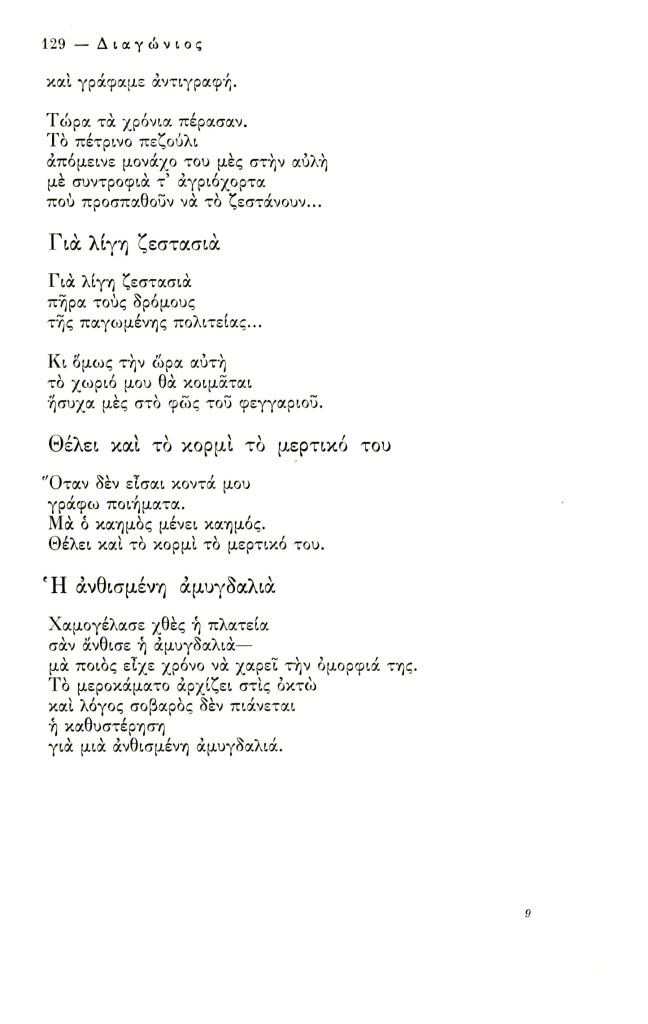 129 — Διαγώνιος
καὶ γράφαμε ἀντιγραφή.
Τώρα τὰ χρόνια πέρασαν.
Τὸ πέτρινο πεζούλι
ἀπόμεινε μονάχο του μὲς στὴν αὐλὴ
μὲ συντροφιὰ τ' ἀγριόχορτα
ποὺ προσπαθοῦν νὰ τὸ ζεστάνουν...
Γιὰ λίγη ζεστασιὰ
Γιὰ λίγη ζεστασιὰ
πῆρα τοὺς δρόμους
τῆς παγωμένης πολιτείας...
Κι ὅμως τὴν ὥρα αὐτὴ
τὸ χωριό μου θὰ κοιμᾶται
ἥσυχα μὲς στὸ φῶς τοῦ φεγγαριοῦ.
Θέλει καὶ τὸ κορμὶ τὸ μερτικό του
Ὅταν δὲν εἶσαι κοντά μου
γράφω ποιήματα.
Μὰ ὁ καημὸς μένει καημός.
Θέλει καὶ τὸ κορμὶ τὸ μερτικό του.
Ἡ ἀνθισμένη ἀμυγδαλιὰ
Χαμογέλασε χθὲς ἡ πλατεία
σὰν ἄνθισε ἡ ἀμυγδαλιὰ—
μὰ ποιὸς εἶχε χρόνο νὰ χαρεῖ τὴν ὀμορφιά της.
Τὸ μεροκάματο ἀρχίζει στὶς ὀκτὼ
καὶ λόγος σοβαρὸς δὲν πιάνεται
ἡ καθυστέρηση
γιὰ μιὰ ἀνθισμένη ἀμυγδαλιά.
9